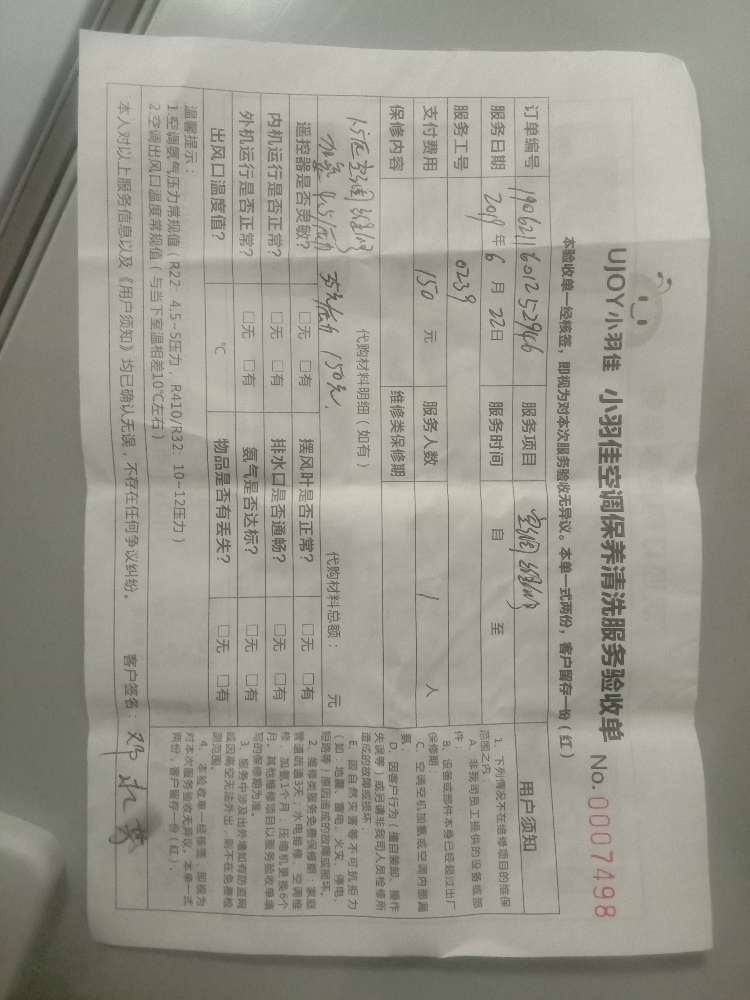 UJOY小羽佳 小羽佳空调保养清洗服务验收单 No. 0007498
本验收单一经核签，即视为对本次服务验收无异议。本单一式两份，客户留存一份（红）
订单编号 1906211601252946 服务项目 空调维修
服务日期 2019年6月22日 服务时间 自 至
服务工号 0239
支付费用 150 元 服务人数 1 人
保修内容 维修类保修期
代购材料明细（如有） 代购材料总额： 元
1.5匹空调维修
加氟 4.5压力 35元/压力 150元.
遥控器是否灵敏？ □无 □有 摆风叶是否正常？ □无 □有
内机运行是否正常？ □无 □有 排水口是否通畅？ □无 □有
外机运行是否正常？ □无 □有 氨气是否达标？ □无 □有
出风口温度值？ ℃ 物品是否有丢失？ □无 □有
温馨提示：
1.空调氨气压力常规值（R22：4.5-5压力，R410/R32：10-12压力）
2.空调出风口温度常规值（与当下室温相差10℃左右）
本人对以上服务信息以及《用户须知》均已确认无误，不存在任何争议纠纷。 客户签名：邓
用户须知
1、下列情况不在维修项目的维保
范围之内：
A、非我司员工提供的设备或部
件；
B、设备或部件本身已经超过出厂
保修期；
C、空调空机加氨或空调内部漏
氨；
D、因客户行为（擅自装卸、操作
失误等）或另请非我司人员检修所
造成的故障或损坏；
E、因自然灾害等不可抗拒力
（如：地震、雷电、火灾、停电、
短路等）原因造成的故障或损坏。
2、维修类服务免费保修期：家庭
管道疏通3天；水电维修、空调维
修、加氨1个月；压缩机更换6个
月。其他维修项目以服务验收单填
写的保修期为准。
3、服务中涉及出外墙如有防盗网
或因高空无法外出，则不在免费检
测范围。
4、本验收单一经核签，即视为
对本次服务验收无异议。本单一式
两份，客户留存一份（红）。